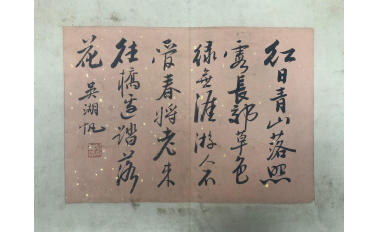 紅日青山落照
霞長郊草色
綠無涯游人不
春將老來
往橋邊踏落
花
吳湖帆